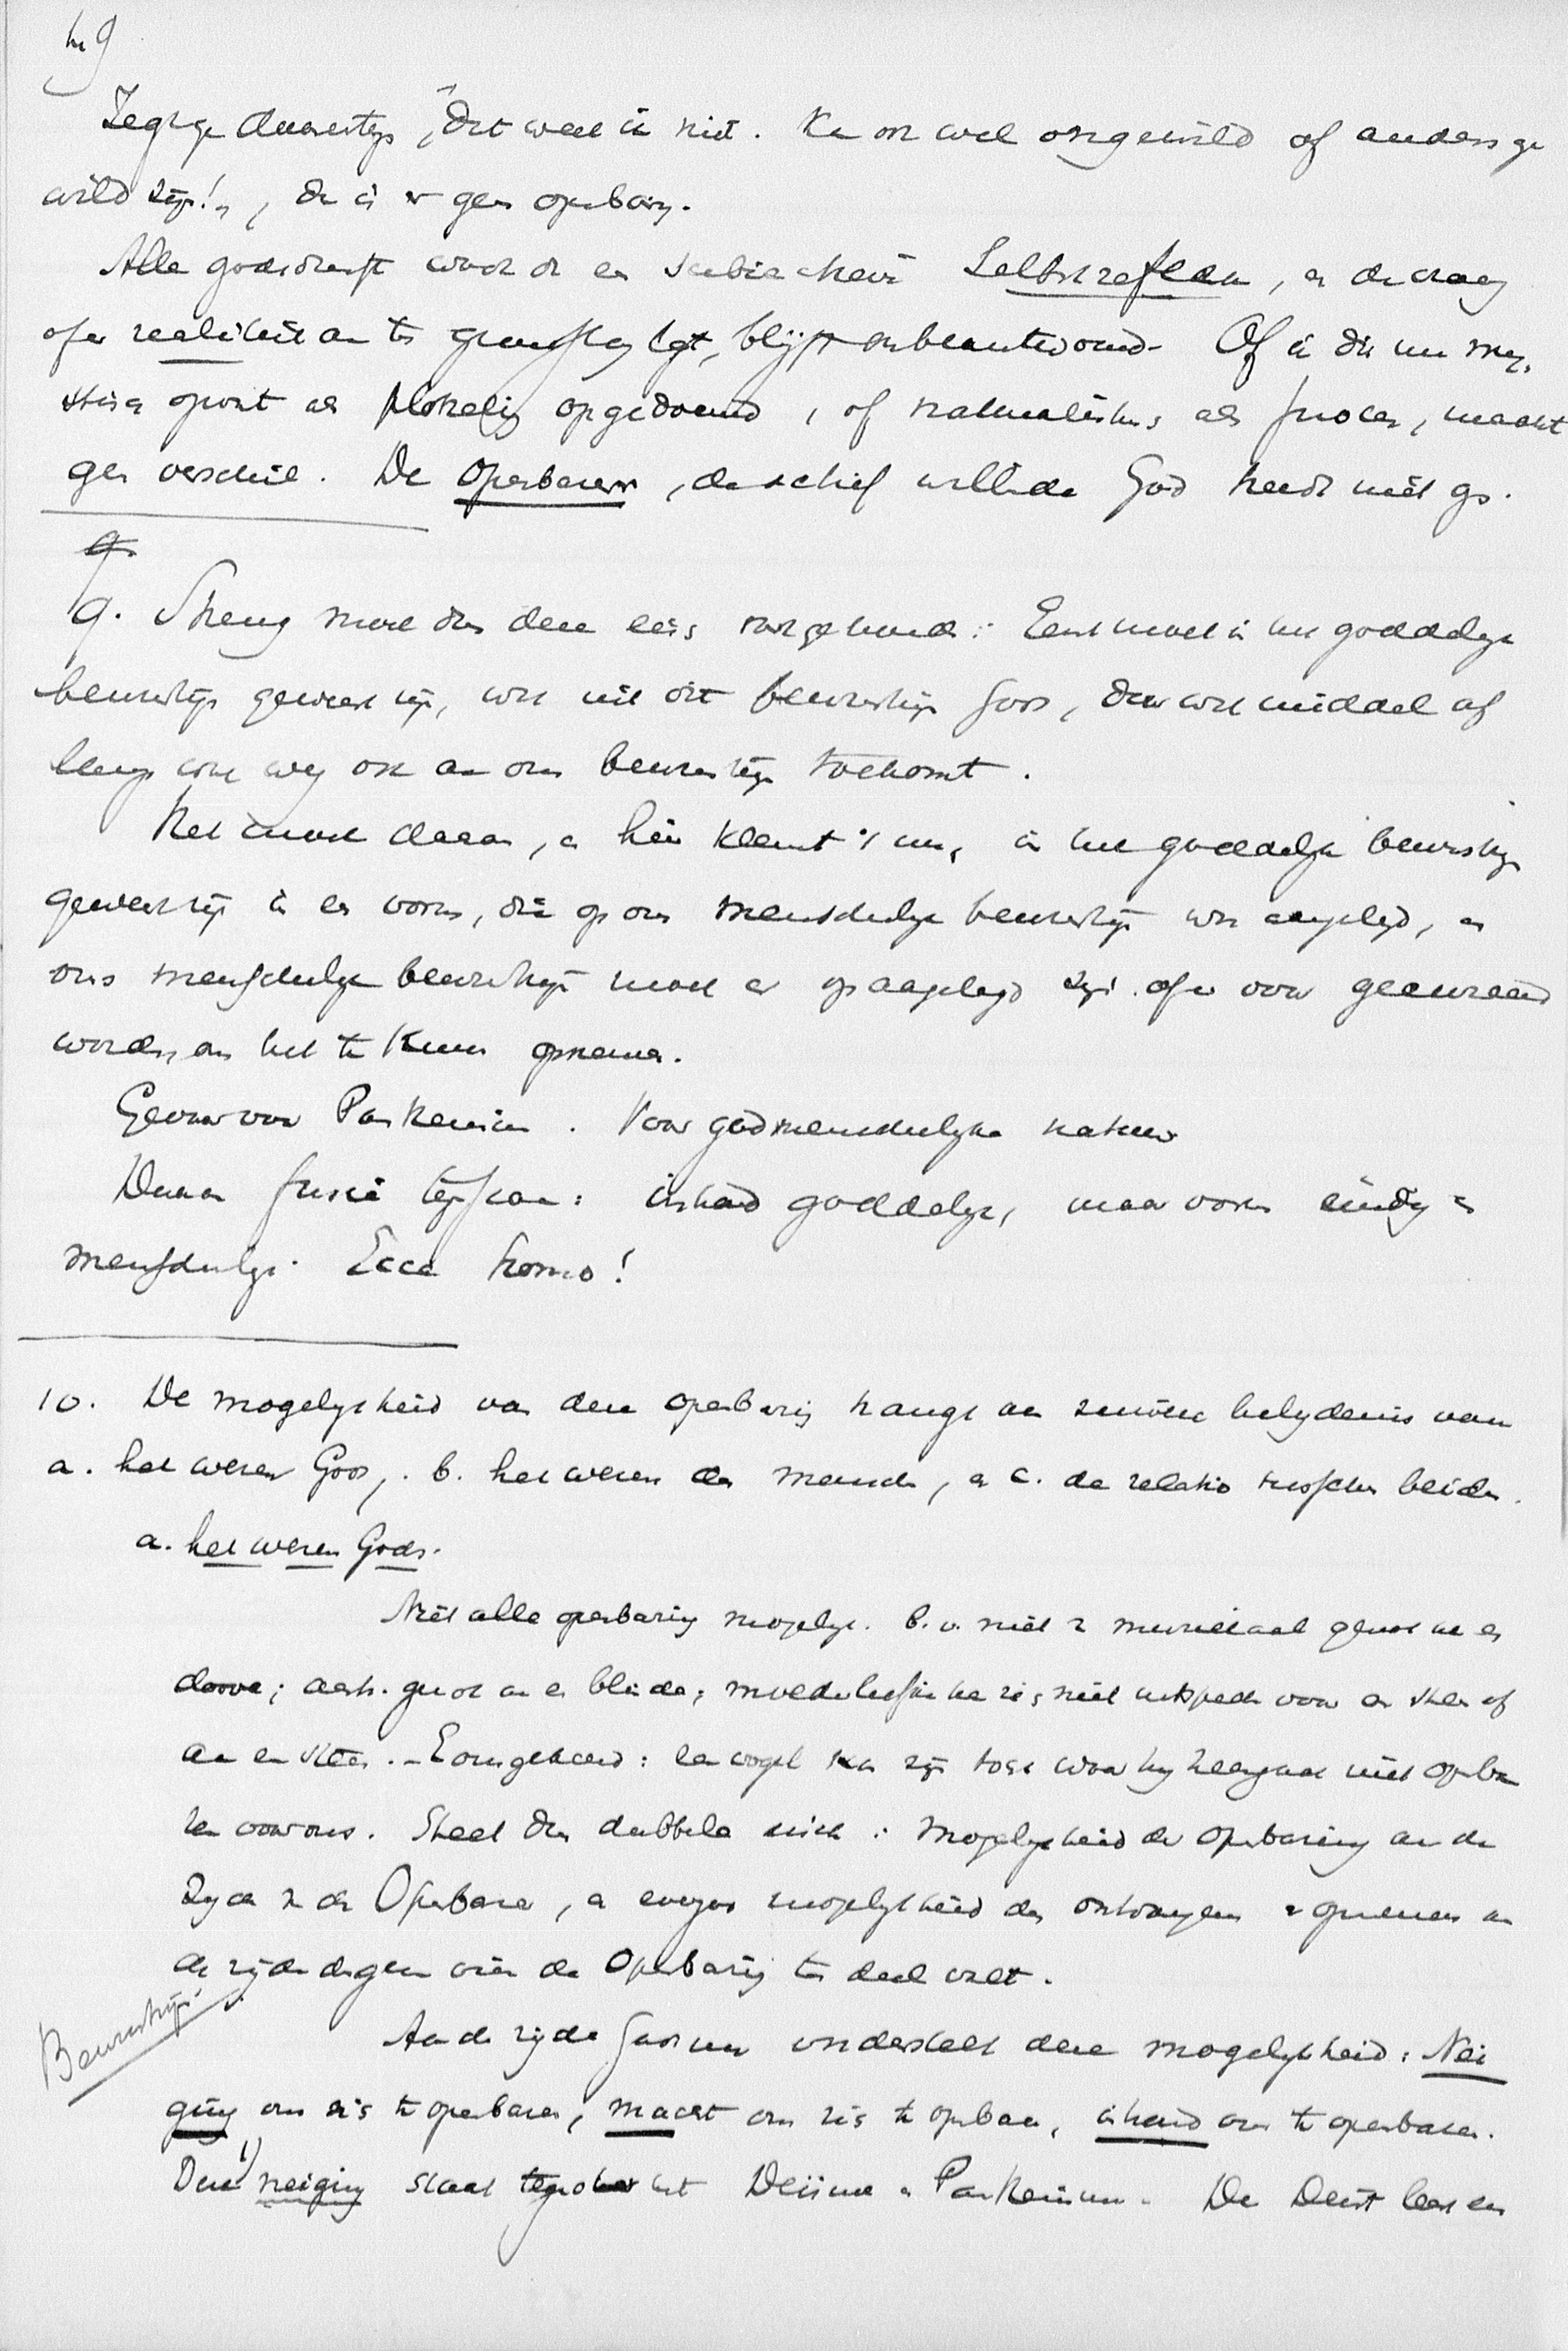 9
Zegt ge daarentegen, "dit weet ik niet. Kan ook wel ongewild of anders ge
wild zijn!", dan is er geen openbaring.
Alle godsdienst wordt dan een subiectieve Selbstreflex, en de vraag
of er realiteit aan ten grondslag ligt, blijft onbeantwoord. Of ik die nu mys
tisch opvat als plotseling opgedoemd, of naturalistisch als proces, maakt
geen verschil. De Openbarer, de actief willende God treedt niet op.
9.
9. Streng moet dus deze eis vastgehouden: Eerst moet in het goddelijk
bewustzijn geweest zijn, wat uit dit bewustzijn Gods, door wat middel of
langs wat weg ook aan ons bewustzijn toekomt.
Het moet daarin, en hier klemt 't nu, in het goddelijk bewustzijn
geweest zijn in een vorm, die op ons menschelijk bewustzijn was aangelegd, en
ons menschelijk bewustzijn moet er op aangelegd zijn of er voor
worden om het te kunnen opnemen.
Gevaar voor Pantheisme. Voor godmenschelijke natuur
Daarin juist : inhoud goddelijk, maar vorm eindig en
menschelijk. Ecce homo!
10. De mogelijkheid van deze openbaring hangt aan zuivere belijdenis van
a. het wezen Gods, b. het wezen des menschen, en c. de relatie tusschen beiden.
a. het wezen Gods.
Niet alle openbaring mogelijk. B.v. niet v. muzikaal genot aan een
doove; aesth. genot aan een blinde; moederliefde kan zich niet uitspreken voor een steen of
aan een steen. Eveneens: een vogel kan zijn tocht waar hij heengaat niet openba
ren voor ons. Steeds dus dubbele eisch: Mogelijkheid der Openbaring aan de
zijde v. den Openbarer, en evenzoo mogelijkheid des ontvangens en opnemens aan
de zijde desgenen wien de Openbaring ten deel valt.
Bewustzijn
Aan de zijde Gods nu onderstelt deze mogelijkheid: Nei
ging om zich te openbaren, macht om zich te openbaren, inhoud om te openbaren.
Deze 1) neiging staat tegenover het Deïsme en Pantheïsme. De Deïst leert een